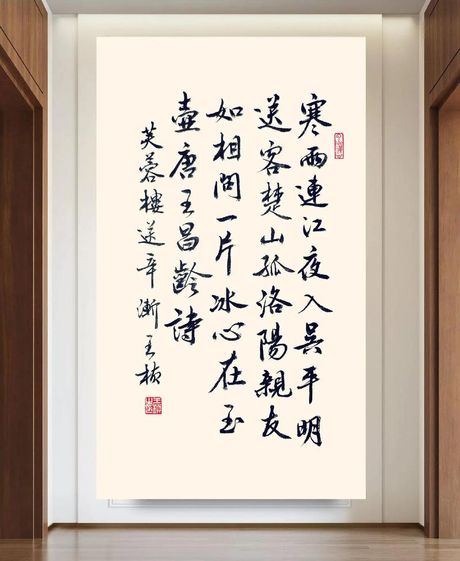 寒雨連江夜入吳平明
送客楚山孤洛陽親友
如相問一片冰心在玉
壺唐王昌齡詩
芙蓉樓送辛漸王楨